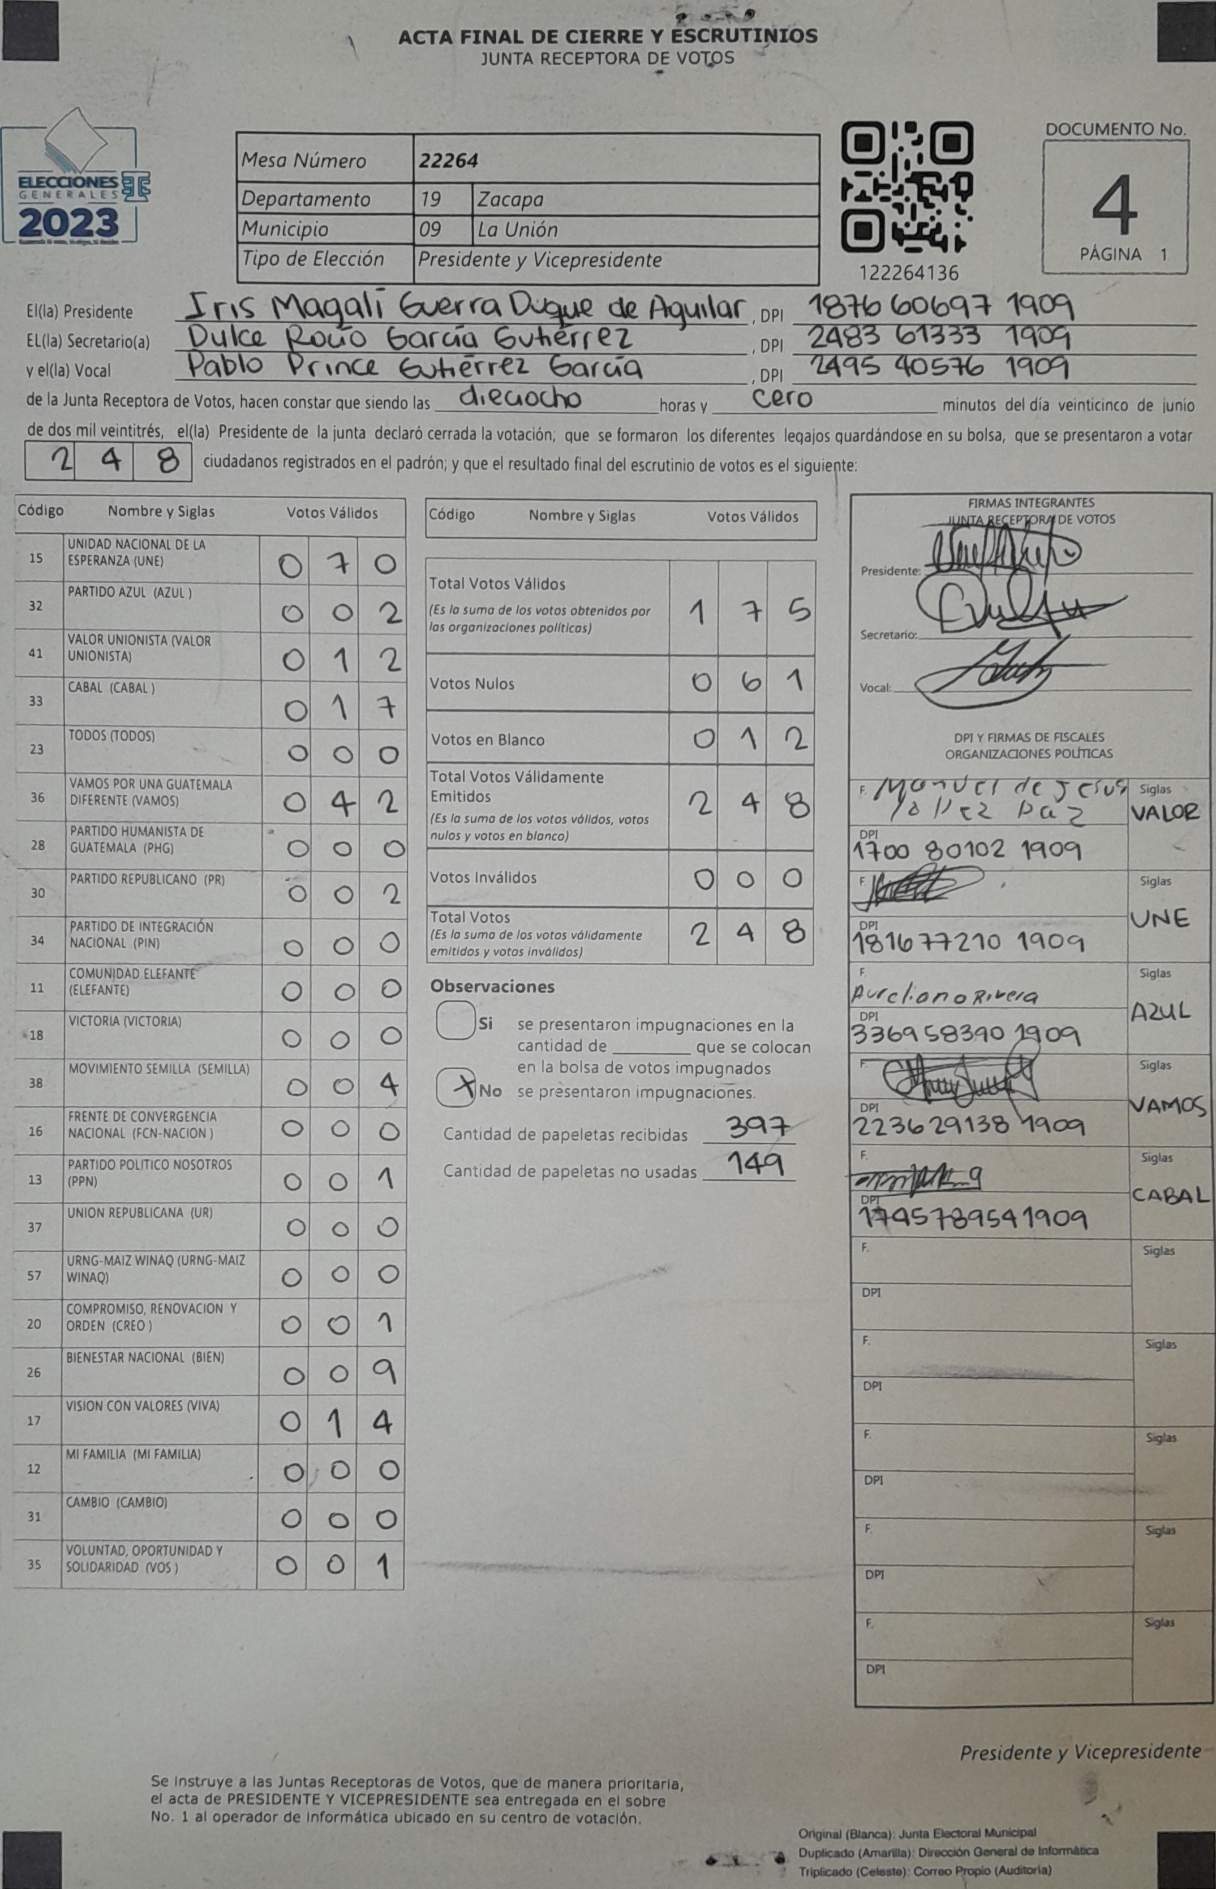 ACTA FINAL DE CIERRE Y ESCRUTINIOS
JUNTA RECEPTORA DE VOTOS
ELECCIONES
GENERALES
2023
Mesa Número 22264
Departamento 19 Zacapa
Municipio 09 La Unión
Tipo de Elección Presidente y Vicepresidente
122264136
DOCUMENTO No.
4
PÁGINA 1
El(la) Presidente Iris Magalí Guerra Duque de Aguilar, DPI 1876 60697 1909
EL(la) Secretario(a) Dulce Rocío García Gutiérrez, DPI 2483 61333 1909
y el(la) Vocal Pablo Prince Gutiérrez García, DPI 2495 40576 1909
de la Junta Receptora de Votos, hacen constar que siendo las dieciocho horas y cero minutos del día veinticinco de junio
de dos mil veintitrés, el(la) Presidente de la junta declaró cerrada la votación; que se formaron los diferentes legajos guardándose en su bolsa, que se presentaron a votar
2 4 8 ciudadanos registrados en el padrón; y que el resultado final del escrutinio de votos es el siguiente:
Código Nombre y Siglas Votos Válidos
15 UNIDAD NACIONAL DE LA ESPERANZA (UNE) 0 7 0
32 PARTIDO AZUL (AZUL ) 0 0 2
41 VALOR UNIONISTA (VALOR UNIONISTA) 0 1 2
33 CABAL (CABAL ) 0 1 7
23 TODOS (TODOS) 0 0 0
36 VAMOS POR UNA GUATEMALA DIFERENTE (VAMOS) 0 4 2
28 PARTIDO HUMANISTA DE GUATEMALA (PHG) 0 0 0
30 PARTIDO REPUBLICANO (PR) 0 0 2
34 PARTIDO DE INTEGRACIÓN NACIONAL (PIN) 0 0 0
11 COMUNIDAD ELEFANTE (ELEFANTE) 0 0 0
18 VICTORIA (VICTORIA) 0 0 0
38 MOVIMIENTO SEMILLA (SEMILLA) 0 0 4
16 FRENTE DE CONVERGENCIA NACIONAL (FCN-NACION ) 0 0 0
13 PARTIDO POLITICO NOSOTROS (PPN) 0 0 1
37 UNION REPUBLICANA (UR) 0 0 0
57 URNG-MAIZ WINAQ (URNG-MAIZ WINAQ) 0 0 0
20 COMPROMISO, RENOVACION Y ORDEN (CREO ) 0 0 1
26 BIENESTAR NACIONAL (BIEN) 0 0 9
17 VISION CON VALORES (VIVA) 0 1 4
12 MI FAMILIA (MI FAMILIA) 0 0 0
31 CAMBIO (CAMBIO) 0 0 0
35 VOLUNTAD, OPORTUNIDAD Y SOLIDARIDAD (VOS ) 0 0 1
Código Nombre y Siglas Votos Válidos
Total Votos Válidos
(Es la suma de los votos obtenidos por
las organizaciones políticas) 1 7 5
Votos Nulos 0 6 1
Votos en Blanco 0 1 2
Total Votos Válidamente
Emitidos
(Es la suma de los votos válidos, votos
nulos y votos en blanco) 2 4 8
Votos Inválidos 0 0 0
Total Votos
(Es la suma de los votos válidamente
emitidos y votos inválidos) 2 4 8
Observaciones
Si se presentaron impugnaciones en la
cantidad de ________ que se colocan
en la bolsa de votos impugnados
X No se presentaron impugnaciones.
Cantidad de papeletas recibidas 397
Cantidad de papeletas no usadas 149
FIRMAS INTEGRANTES
JUNTA RECEPTORA DE VOTOS
Presidente:
Secretario:
Vocal:
DPI Y FIRMAS DE FISCALES
ORGANIZACIONES POLÍTICAS
F. Manuel de Jesus Siglas
Paz VALOR
DPI
1700 80102 1909
F. Siglas
UNE
DPI
181677210 1909
F. Siglas
Aureliano Rivera AZUL
DPI
336958390 1909
F. Siglas
VAMOS
DPI
223629138 1909
F. Siglas
CABAL
DPI
1745789541909
F. Siglas
DPI
F. Siglas
DPI
F. Siglas
DPI
F. Siglas
DPI
F. Siglas
DPI
Presidente y Vicepresidente
Se instruye a las Juntas Receptoras de Votos, que de manera prioritaria,
el acta de PRESIDENTE Y VICEPRESIDENTE sea entregada en el sobre
No. 1 al operador de informática ubicado en su centro de votación.
Original (Blanca): Junta Electoral Municipal
Duplicado (Amarilla): Dirección General de Informática
Triplicado (Celeste): Correo Propio (Auditoria)